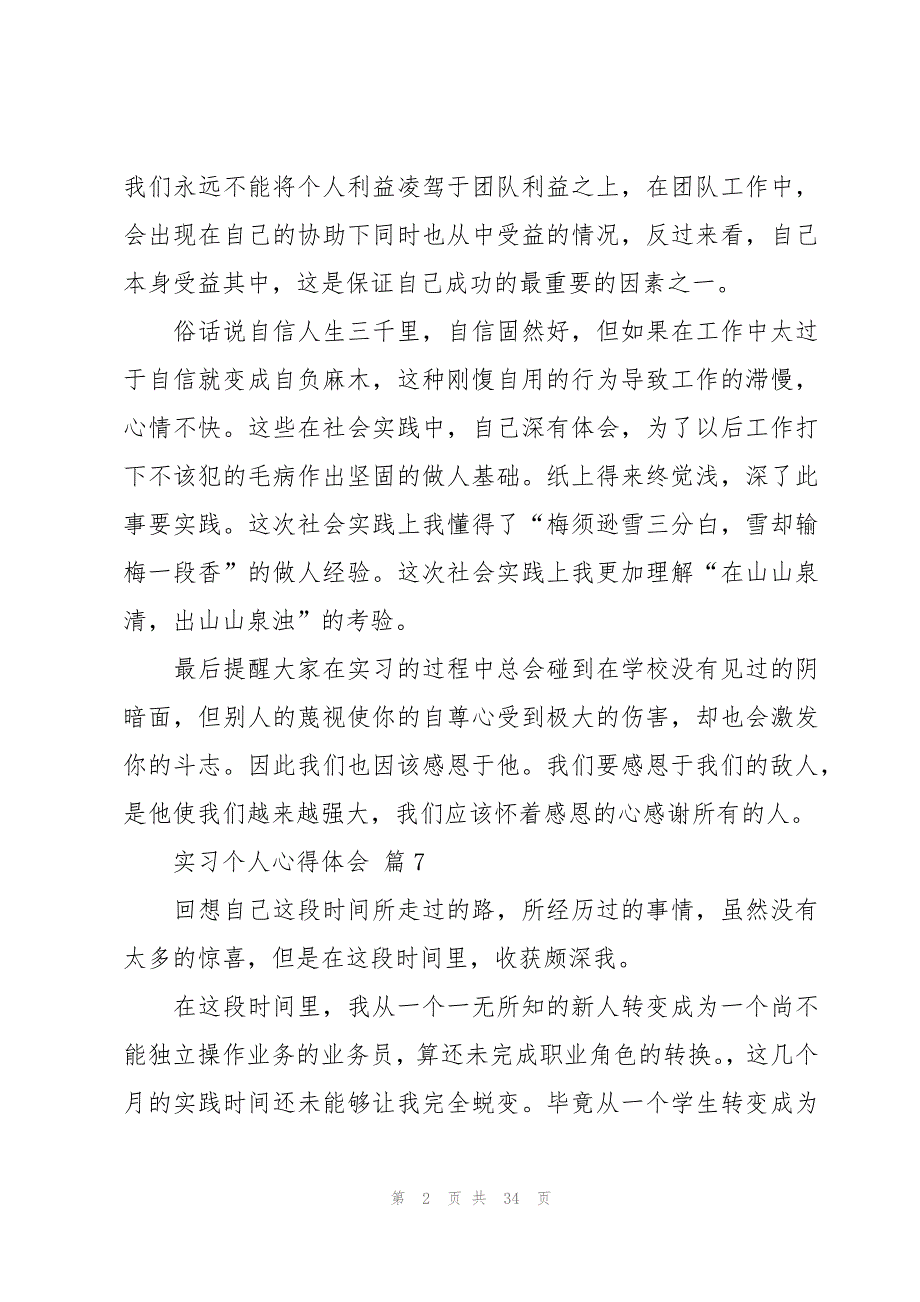 我们永远不能将个人利益凌驾于团队利益之上，在团队工作中，
会出现在自己的协助下同时也从中受益的情况，反过来看，自己
本身受益其中，这是保证自己成功的最重要的因素之一。
俗话说自信人生三千里，自信固然好，但如果在工作中太过
于自信就变成自负麻木，这种刚愎自用的行为导致工作的滞慢，
心情不快。这些在社会实践中，自己深有体会，为了以后工作打
下不该犯的毛病作出坚固的做人基础。纸上得来终觉浅，深了此
事要实践。这次社会实践上我懂得了“梅须逊雪三分白，雪却输
梅一段香”的做人经验。这次社会实践上我更加理解“在山山泉
清，出山山泉浊”的考验。
最后提醒大家在实习的过程中总会碰到在学校没有见过的阴
暗面，但别人的蔑视使你的自尊心受到极大的伤害，却也会激发
你的斗志。因此我们也因该感恩于他。我们要感恩于我们的敌人，
是他使我们越来越强大，我们应该怀着感恩的心感谢所有的人。
实习个人心得体会 篇7
回想自己这段时间所走过的路，所经历过的事情，虽然没有
太多的惊喜，但是在这段时间里，收获颇深我。
在这段时间里，我从一个一无所知的新人转变成为一个尚不
能独立操作业务的业务员，算还未完成职业角色的转换。，这几个
月的实践时间还未能够让我完全蜕变。毕竟从一个学生转变成为
第 2 页 共 34 页